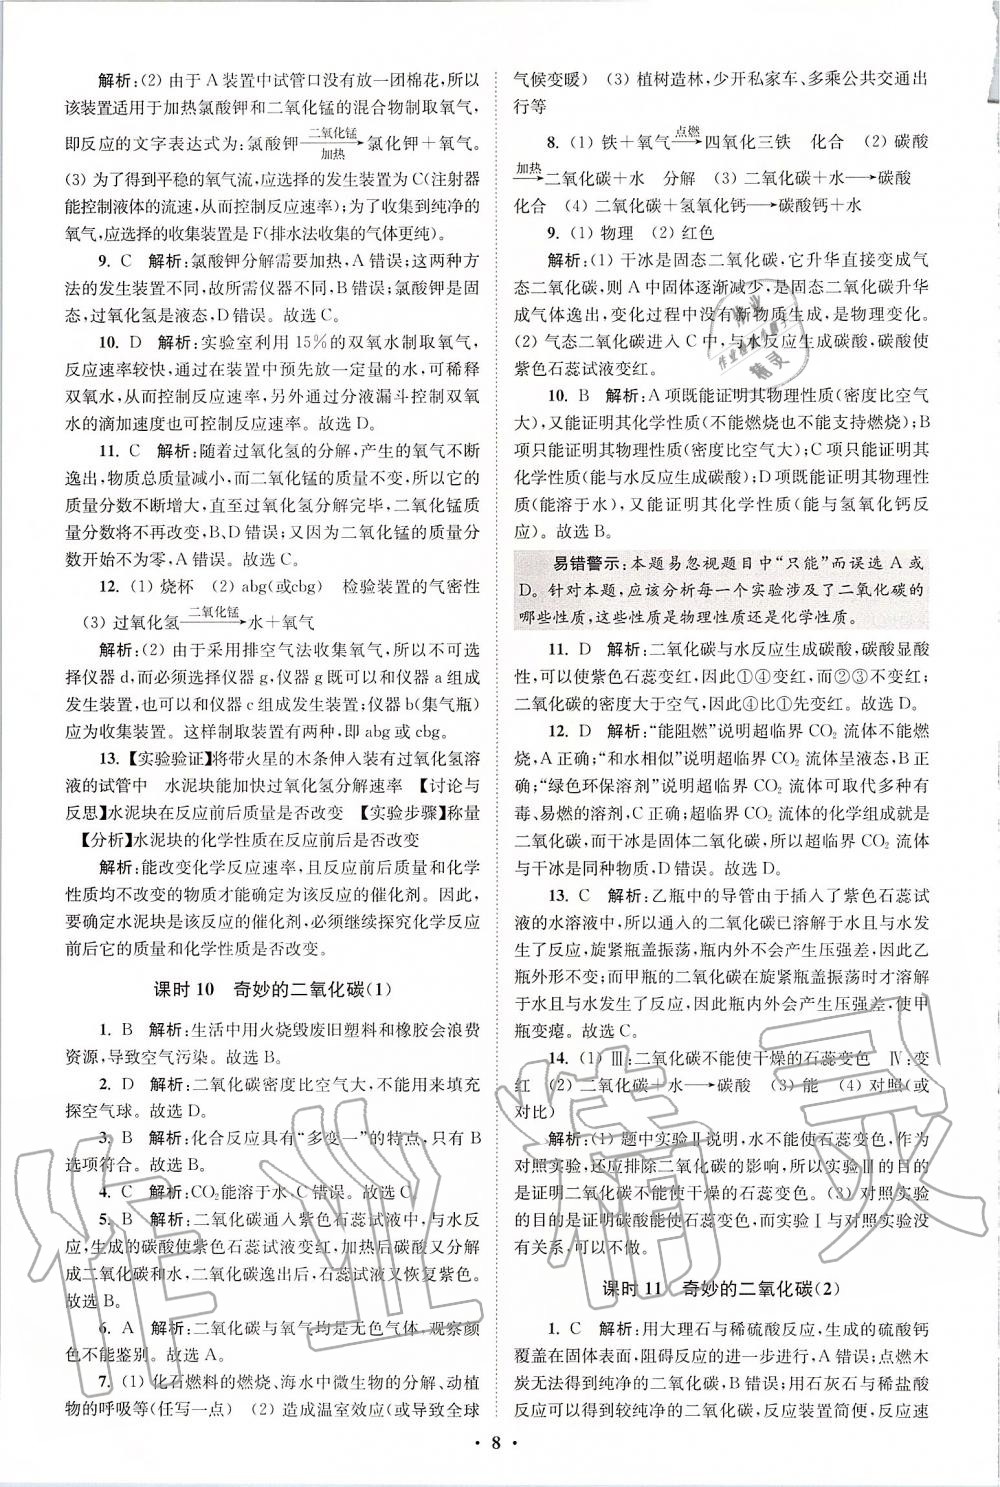 解析:(2) 由于 A 装置中试管口没有放一团棉花,所以
该装置适用于加热氯酸钾和二氧化锰的混合物制取氧气,
即反应的文字表达式为:氯酸钾 二氧化锰 加热 → 氯化钾+氧气。
(3) 为了得到平稳的氧气流,应选择的发生装置为 C(注射器
能控制液体的流速,从而控制反应速率);为了收集到纯净的
氧气,应选择的收集装置是 F(排水法收集的气体更纯)。
9. C 解析:氯酸钾分解需要加热,A 错误;这两种方
法的发生装置不同,故所需仪器不同,B 错误;氯酸钾是固
态,过氧化氢是液态,D 错误。故选 C。
10. D 解析:实验室利用 15%的双氧水制取氧气,
反应速率较快,通过在装置中预先放一定量的水,可稀释
双氧水,从而控制反应速率,另外通过分液漏斗控制双氧
水的滴加速度也可控制反应速率。故选 D。
11. C 解析:随着过氧化氢的分解,产生的氧气不断
逸出,物质总质量减小,而二氧化锰的质量不变,所以它的
质量分数不断增大,直至过氧化氢分解完毕,二氧化锰质
量分数将不再改变,B、D 错误;又因为二氧化锰的质量分
数开始不为零,A 错误。故选 C。
12. (1) 烧杯 (2) abg(或cbg) 检验装置的气密性
(3) 过氧化氢 二氧化锰 → 水+氧气
解析:(2) 由于采用排空气法收集氧气,所以不可选
择仪器 d,而必须选择仪器 g,仪器 g 既可以和仪器 a 组成
发生装置,也可以和仪器 c 组成发生装置;仪器 b(集气瓶)
应为收集装置。这样制取装置有两种,即 abg 或 cbg。
13.【实验验证】将带火星的木条伸入装有过氧化氢溶
液的试管中 水泥块能加快过氧化氢分解速率 【讨论与
反思】水泥块在反应前后质量是否改变 【实验步骤】称量
【分析】水泥块的化学性质在反应前后是否改变
解析:能改变化学反应速率,且反应前后质量和化学
性质均不改变的物质才能确定为该反应的催化剂。因此,
要确定水泥块是该反应的催化剂,必须继续探究化学反应
前后它的质量和化学性质是否改变。
课时 10 奇妙的二氧化碳(1)
1. B 解析:生活中用火烧毁废旧塑料和橡胶会浪费
资源,导致空气污染。故选 B。
2. D 解析:二氧化碳密度比空气大,不能用来填充
探空气球。故选 D。
3. B 解析:化合反应具有“多变一”的特点,只有 B
选项符合。故选 B。
4. C 解析:CO₂能溶于水,C 错误。故选 C。
5. B 解析:二氧化碳通入紫色石蕊试液中,与水反
应,生成的碳酸使紫色石蕊试液变红,加热后碳酸又分解
成二氧化碳和水,二氧化碳逸出后,石蕊试液又恢复紫色。
故选 B。
6. A 解析:二氧化碳与氧气均是无色气体,观察颜
色不能鉴别。故选 A。
7. (1) 化石燃料的燃烧、海水中微生物的分解、动植
物的呼吸等(任写一点) (2) 造成温室效应(或导致全球
气候变暖) (3) 植树造林,少开私家车、多乘公共交通出
行等
8. (1) 铁+氧气 点燃 → 四氧化三铁 化合 (2) 碳酸
加热 → 二氧化碳+水 分解 (3) 二氧化碳+水 → 碳酸
化合 (4) 二氧化碳+氢氧化钙 → 碳酸钙+水
9. (1) 物理 (2) 红色
解析:(1) 干冰是固态二氧化碳,它升华直接变成气
态二氧化碳,则 A 中固体逐渐减少,是固态二氧化碳升华
成气体逸出,变化过程中没有新物质生成,是物理变化。
(2) 气态二氧化碳进入 C 中,与水反应生成碳酸,碳酸使
紫色石蕊试液变红。
10. B 解析:A 项既能证明其物理性质(密度比空气
大),又能证明其化学性质(不能燃烧也不能支持燃烧);B
项只能证明其物理性质(密度比空气大);C 项只能证明其
化学性质(能与水反应生成碳酸);D 项既能证明其物理性
质(能溶于水),又能证明其化学性质(能与氢氧化钙反
应)。故选 B。
易错警示:本题易忽视题目中“只能”而误选 A 或
D。针对本题,应该分析每一个实验涉及了二氧化碳的
哪些性质,这些性质是物理性质还是化学性质。
11. D 解析:二氧化碳与水反应生成碳酸,碳酸显酸
性,可以使紫色石蕊变红,因此①④变红,而②③不变红;
二氧化碳的密度大于空气,因此④比①先变红。故选 D。
12. D 解析:“能阻燃”说明超临界 CO₂ 流体不能燃
烧,A 正确;“和水相似”说明超临界 CO₂ 流体呈液态,B 正
确;“绿色环保溶剂”说明超临界 CO₂ 流体可取代多种有
毒、易燃的溶剂,C 正确;超临界 CO₂ 流体的化学组成就是
二氧化碳,而干冰是固体二氧化碳,所以超临界 CO₂ 流体
与干冰是同种物质,D 错误。故选 D。
13. C 解析:乙瓶中的导管由于插入了紫色石蕊试
液的水溶液中,所以通入的二氧化碳已溶解于水且与水发
生了反应,旋紧瓶盖振荡,瓶内外不会产生压强差,因此乙
瓶外形不变;而甲瓶的二氧化碳在旋紧瓶盖振荡时才溶解
于水且与水反应,因此瓶内外会产生压强差,导致甲
瓶变瘪。故选 C。
14. (1) Ⅲ:二氧化碳不能使干燥的石蕊变色 Ⅳ:变
红 (2) 二氧化碳+水 → 碳酸 (3) 能 (4) 对照(或
对比)
解析:(1) 题中实验Ⅱ说明,水不能使石蕊变色,作为
对照实验,还应排除二氧化碳的影响,所以实验Ⅲ的目的
是证明二氧化碳不能使干燥的石蕊变色。(3) 对照实验
的目的是证明碳酸能使石蕊变色,而实验Ⅰ与对照实验没
有关系,可以不做。
课时 11 奇妙的二氧化碳(2)
1. C 解析:用大理石与稀硫酸反应,生成的硫酸钙
覆盖在固体表面,阻碍反应的进一步进行,A 错误;点燃木
炭无法得到纯净的二氧化碳,B 错误;用石灰石与稀盐酸
反应可以得到较纯净的二氧化碳,反应装置简便,反应速
• 8 •
作业精灵